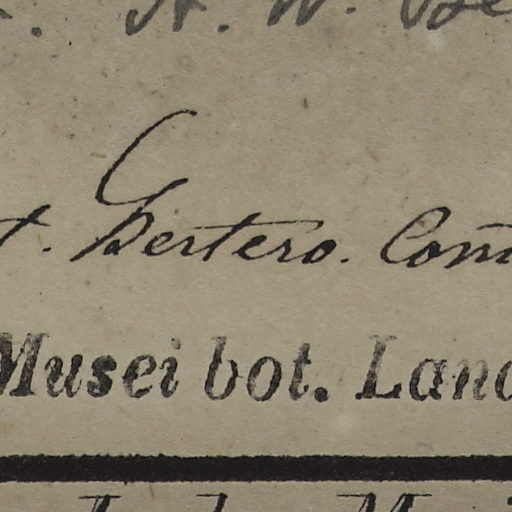 A. W.
t. Bertero. Com
Musei bot. Land